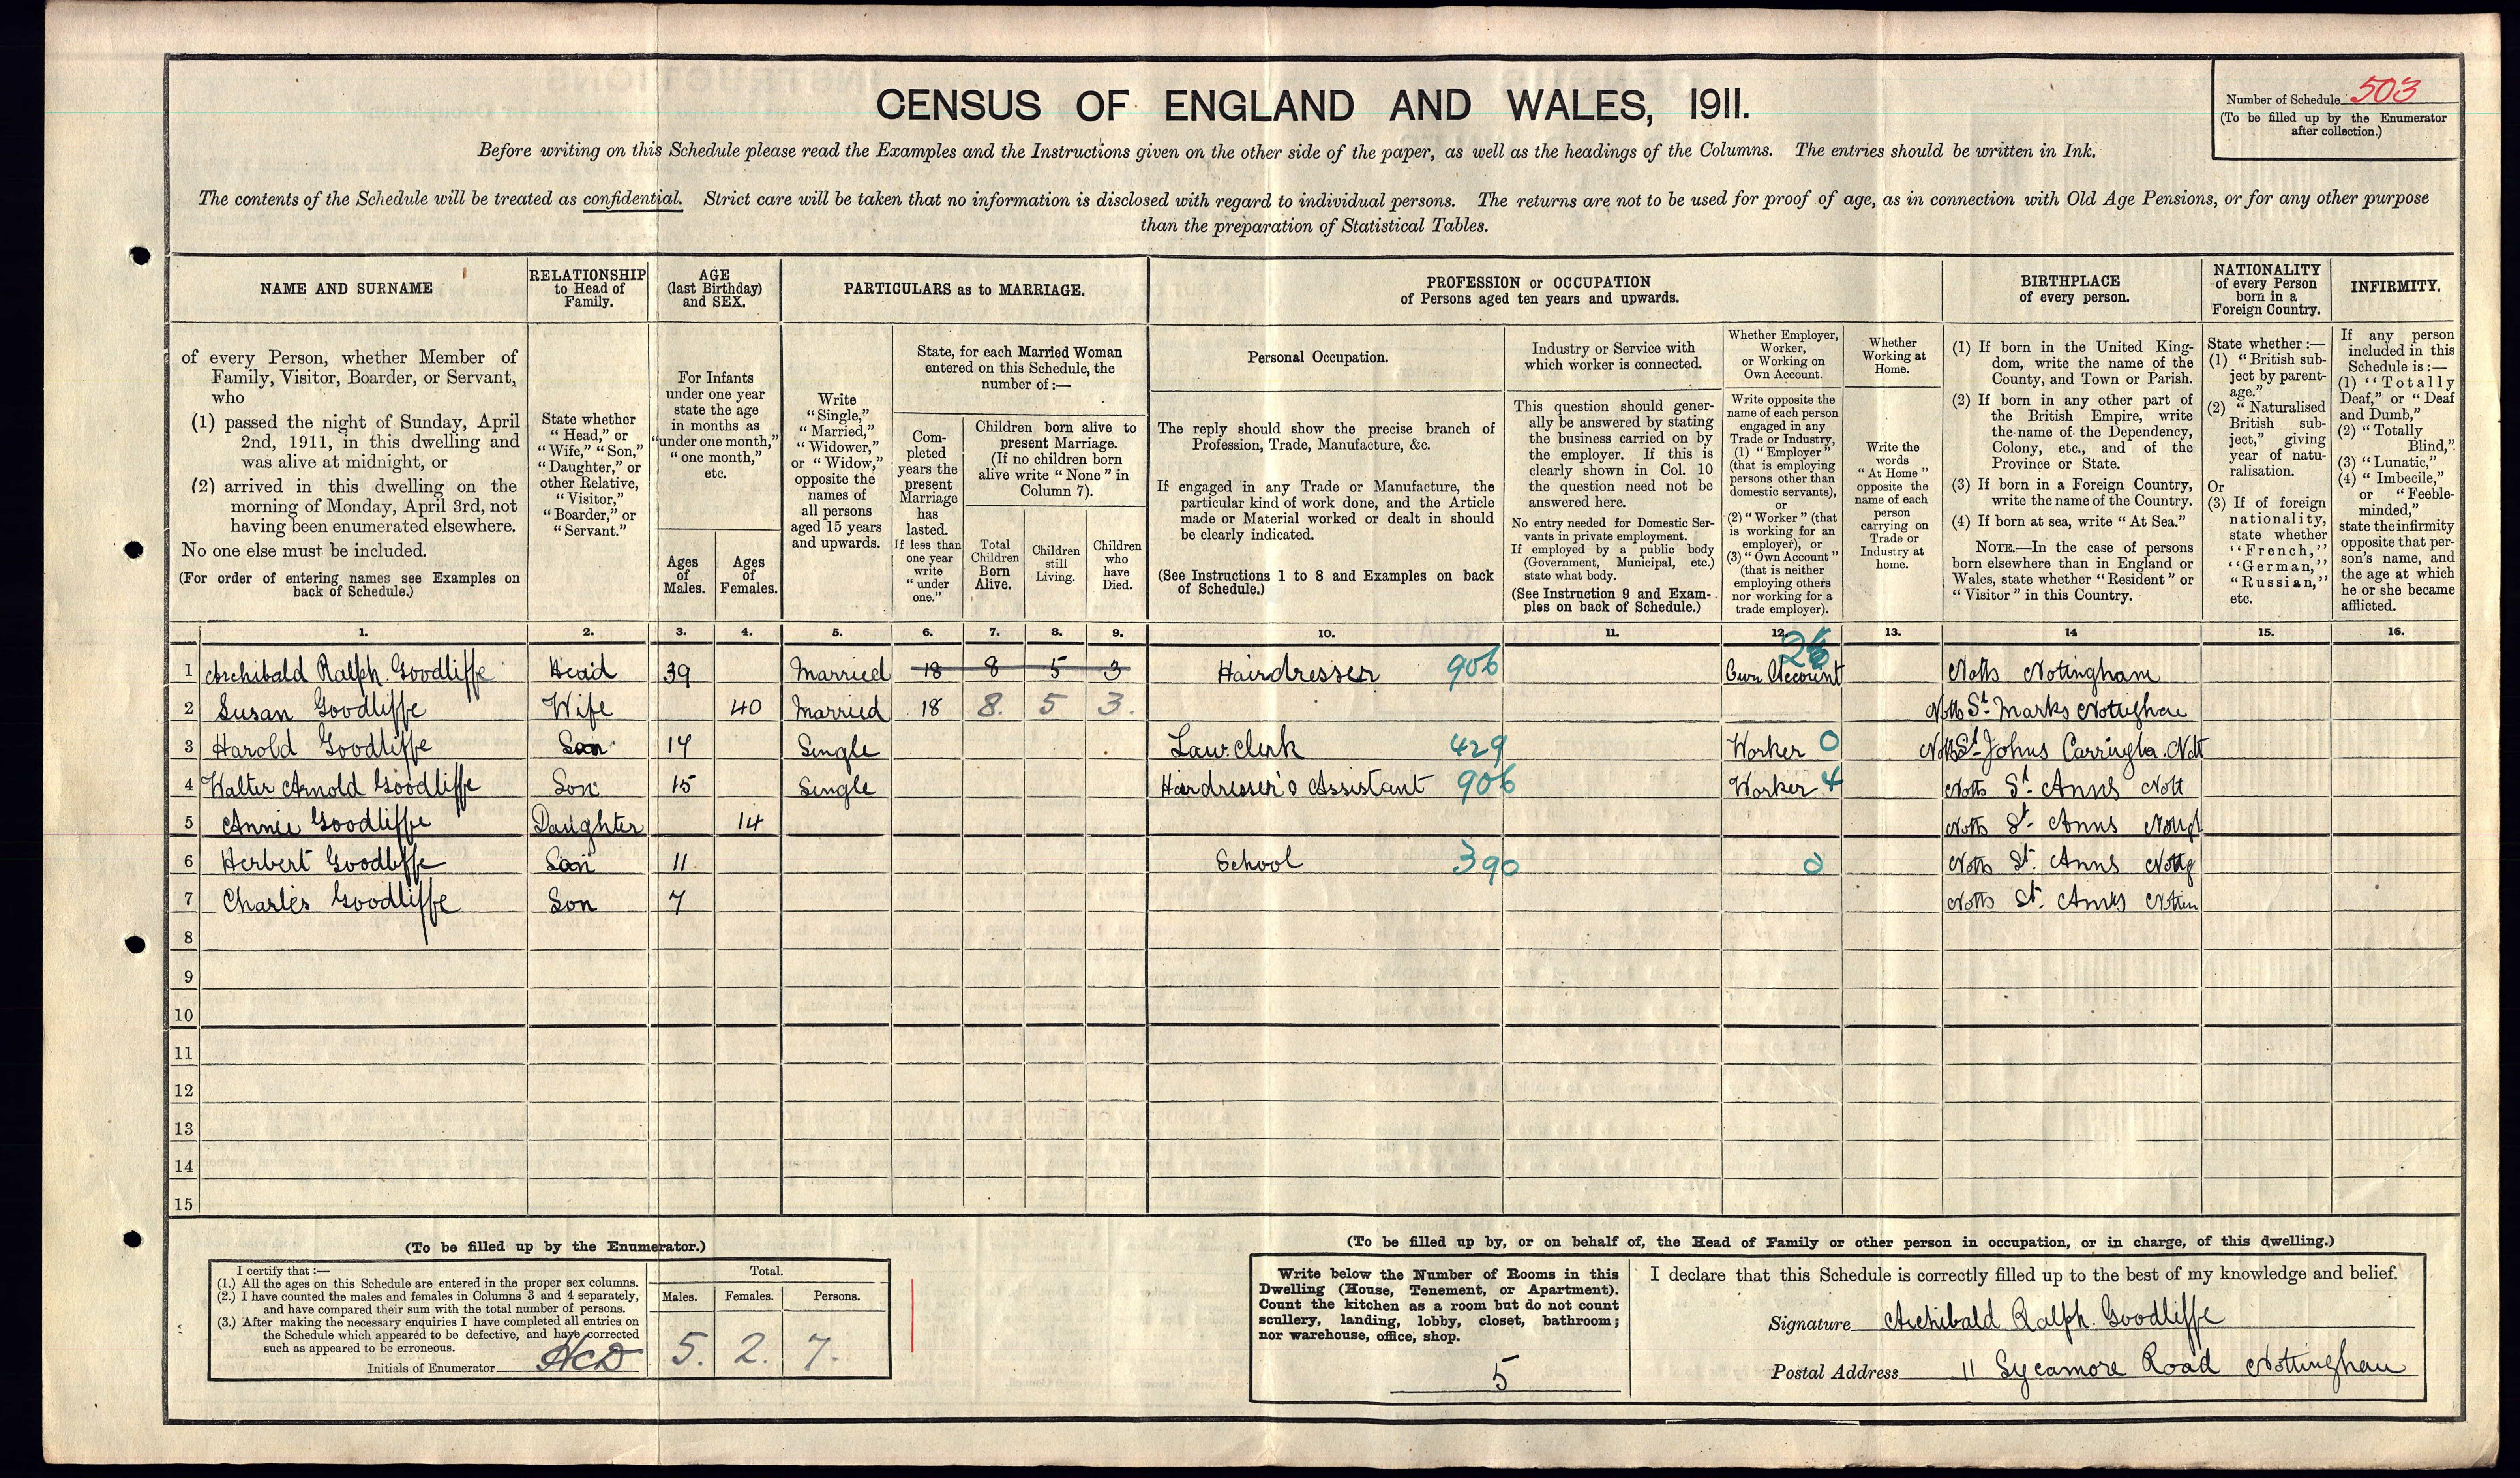 CENSUS OF ENGLAND AND WALES, 1911.
Number of Schedule 503
(To be filled up by the Enumerator
after collection.)
Before writing on this Schedule please read the Examples and the Instructions given on the other side of the paper, as well as the headings of the Columns. The entries should be written in Ink.
The contents of the Schedule will be treated as confidential. Strict care will be taken that no information is disclosed with regard to individual persons. The returns are not to be used for proof of age, as in connection with Old Age Pensions, or for any other purpose
than the preparation of Statistical Tables.
NAME AND SURNAME
of every Person, whether Member of
Family, Visitor, Boarder, or Servant,
who
(1) passed the night of Sunday, April
2nd, 1911, in this dwelling and
was alive at midnight, or
(2) arrived in this dwelling on the
morning of Monday, April 3rd, not
having been enumerated elsewhere.
No one else must be included.
(For order of entering names see Examples on
back of Schedule.)
RELATIONSHIP
to Head of
Family.
State whether
"Head," or
"Wife," "Son,"
"Daughter," or
other Relative,
"Visitor,"
"Boarder," or
"Servant."
AGE
(last Birthday)
and SEX.
For Infants
under one year
state the age
in months as
"under one month,"
"one month,"
etc.
Ages
of
Males.
Ages
of
Females.
PARTICULARS as to MARRIAGE.
Write
"Single,"
"Married,"
"Widower,"
or "Widow,"
opposite the
names of
all persons
aged 15 years
and upwards.
State, for each Married Woman
entered on this Schedule, the
number of:—
Com-
pleted
years the
present
Marriage
has
lasted.
If less than
one year
write
"under
one."
Children born alive to
present Marriage.
(If no children born
alive write "None" in
Column 7).
Total
Children
Born
Alive.
Children
still
Living.
Children
who
have
Died.
PROFESSION or OCCUPATION
of Persons aged ten years and upwards.
Personal Occupation.
The reply should show the precise branch of
Profession, Trade, Manufacture, &c.
If engaged in any Trade or Manufacture, the
particular kind of work done, and the Article
made or Material worked or dealt in should
be clearly indicated.
(See Instructions 1 to 8 and Examples on back
of Schedule.)
Industry or Service with
which worker is connected.
This question should gener-
ally be answered by stating
the business carried on by
the employer. If this is
clearly shown in Col. 10
the question need not be
answered here.
No entry needed for Domestic Ser-
vants in private employment.
If employed by a public body
(Government, Municipal, etc.)
state what body.
(See Instruction 9 and Exam-
ples on back of Schedule.)
Whether Employer,
Worker,
or Working on
Own Account.
Write opposite the
name of each person
engaged in any
Trade or Industry,
(1) "Employer"
(that is employing
persons other than
domestic servants),
or
(2) "Worker" (that
is working for an
employer), or
(3) "Own Account"
(that is neither
employing others
nor working for a
trade employer).
Whether
Working at
Home.
Write the
words
"At Home"
opposite the
name of each
person
carrying on
Trade or
Industry at
home.
BIRTHPLACE
of every person.
(1) If born in the United King-
dom, write the name of the
County, and Town or Parish.
(2) If born in any other part of
the British Empire, write
the name of the Dependency,
Colony, etc., and of the
Province or State.
(3) If born in a Foreign Country,
write the name of the Country.
(4) If born at sea, write "At Sea."
NOTE.—In the case of persons
born elsewhere than in England or
Wales, state whether "Resident" or
"Visitor" in this Country.
NATIONALITY
of every Person
born in a
Foreign Country.
State whether:—
(1) "British sub-
ject by parent-
age."
(2) "Naturalised
British sub-
ject," giving
year of natu-
ralisation.
Or
(3) If of foreign
nationality,
state whether
"French,"
"German,"
"Russian,"
etc.
INFIRMITY.
If any person
included in this
Schedule is:—
(1) "Totally
Deaf," or "Deaf
and Dumb,"
(2) "Totally
Blind,"
(3) "Lunatic,"
(4) "Imbecile,"
or "Feeble-
minded,"
state the infirmity
opposite that per-
son's name, and
the age at which
he or she became
afflicted.
1. 2. 3. 4. 5. 6. 7. 8. 9. 10. 11. 12. 13. 14 15. 16.
1 Archibald Ralph. Goodliffe Head 39 Married 18 8 5 3 Hairdresser 906 Own Account Notts Notingham
2 Susan Goodliffe Wife 40 Married 18 8. 5 3. Notts St. Marks
3 Harold Goodliffe Son 17 Single Law. Clerk 429 Worker 0 Notts St Johns
4 Walter Arnold Goodliffe Son 15 Single Hairdresser's Assistant 906 Worker 4 Notts St. Anns Nott
5 Annie Goodliffe Daughter 14 Notts St. Anns
6 Herbert Goodliffe Son 11 School 390 0 Notts St. Anns Nottg
7 Charles Goodliffe Son 7 Notts St. Anns
8
9
10
11
12
13
14
15
(To be filled up by the Enumerator.)
I certify that:—
(1.) All the ages on this Schedule are entered in the proper sex columns.
(2.) I have counted the males and females in Columns 3 and 4 separately,
and have compared their sum with the total number of persons.
(3.) After making the necessary enquiries I have completed all entries on
the Schedule which appeared to be defective, and have corrected
such as appeared to be erroneous.
Initials of Enumerator HCD
Total.
Males. Females. Persons.
5. 2. 7.
(To be filled up by, or on behalf of, the Head of Family or other person in occupation, or in charge, of this dwelling.)
Write below the Number of Rooms in this
Dwelling (House, Tenement, or Apartment).
Count the kitchen as a room but do not count
scullery, landing, lobby, closet, bathroom;
nor warehouse, office, shop.
5
I declare that this Schedule is correctly filled up to the best of my knowledge and belief.
Signature Archibald Ralph. Goodliffe
Postal Address 11 Sycamore Road Nottingham